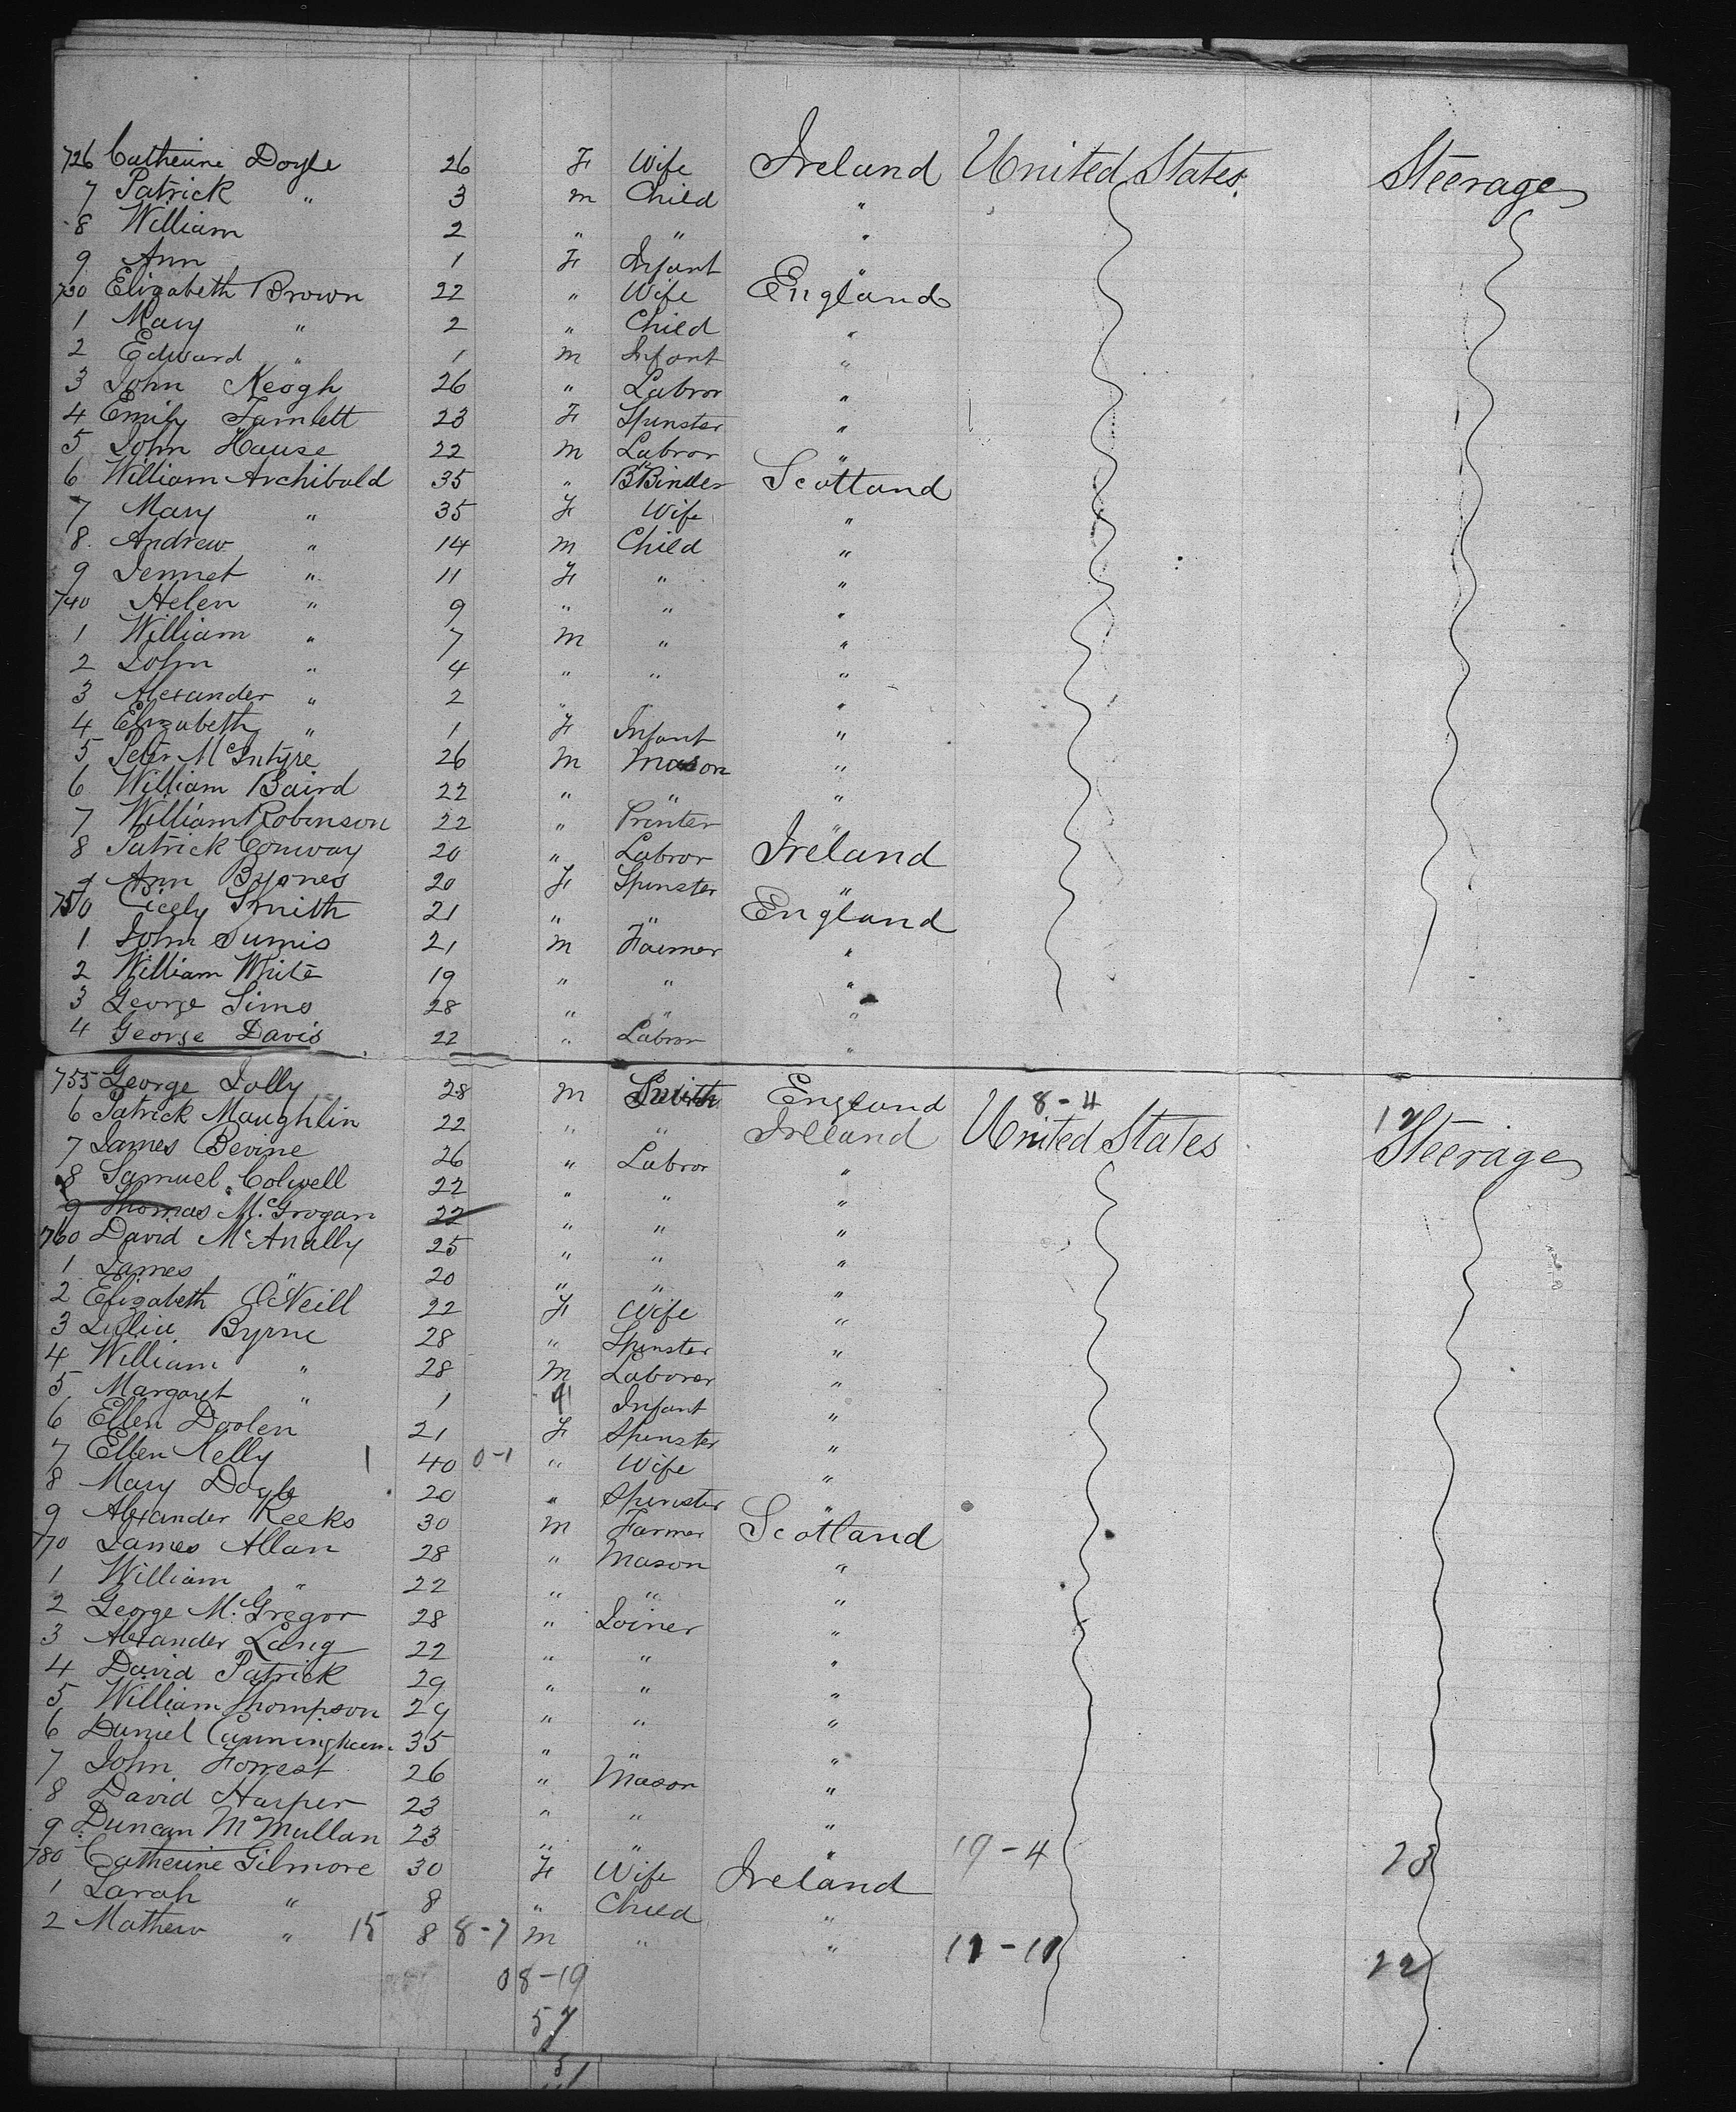 726 Catherine Doyle 26 F Wife Ireland United States Steerage
7 Patrick " 3 m Child "
8 William 2 " " "
9 Ann 1 F Infant "
730 Elizabeth Brown 22 " Wife England
1 Mary " 2 " Child "
2 Edward " 1 m Infant "
3 John Keogh 26 " Labror "
4 Emily 23 F Spinster "
5 John Hause 22 m Labror "
6 William Archibald 35 " B Binder Scotland
7 Mary " 35 F Wife "
8 Andrew " 14 m Child "
9 Jennet " 11 F " "
740 Helen " 9 " " "
1 William " 7 m " "
2 John " 4 " " "
3 Alexander " 2 " " "
4 Elizabeth " 1 F Infant "
5 Peter McIntyre 26 m mason "
6 William Baird 22 " " "
7 William Robinson 22 " Printer "
8 Patrick Conway 20 " Labror Ireland
9 Ann Byrnes 20 F Spinster "
750 Cicely Smith 21 " " England
1 John Sumis 21 m Farmer "
2 William White 19 " " "
3 George Sims 28 " " "
4 George Davis 22 " Labror "
755 George Jolly 28 m Smith England 8-4
6 Patrick Maughlin 22 " " Ireland United States Steerage
7 James Bevine 26 " Labror "
8 Samuel Colwell 22 " " "
9 Thomas McGrogan 22 " " "
760 David McAnally 25 " " "
1 James " 20 " " "
2 Elizabeth O'Neill 22 F Wife "
3 Julia Byrne 28 " Spinster "
4 William " 28 m Laborer "
5 Margaret " 1 Infant "
6 Ellen Doolen 21 F Spinster "
7 Ellen Kelly 1 40 0-1 " Wife "
8 Mary Doyle 20 " Spinster "
9 Alexander Reeks 30 m Farmer Scotland
770 James Allan 28 " Mason "
1 William " 22 " " "
2 George McGregor 28 " Joiner "
3 Alexander Lang 22 " " "
4 David Patrick 29 " " "
5 William Thompson 29 " " "
6 Daniel Cunningham 35 " " "
7 John Forrest 26 " Mason "
8 David Harper 23 " " "
9 Duncan McMullan 23 " " " 19-4
780 Catherine Gilmore 30 F Wife Ireland
1 Sarah " 8 " Child "
2 Mathew " 15 8 8-7 m " " 11-11 22
08-19
57